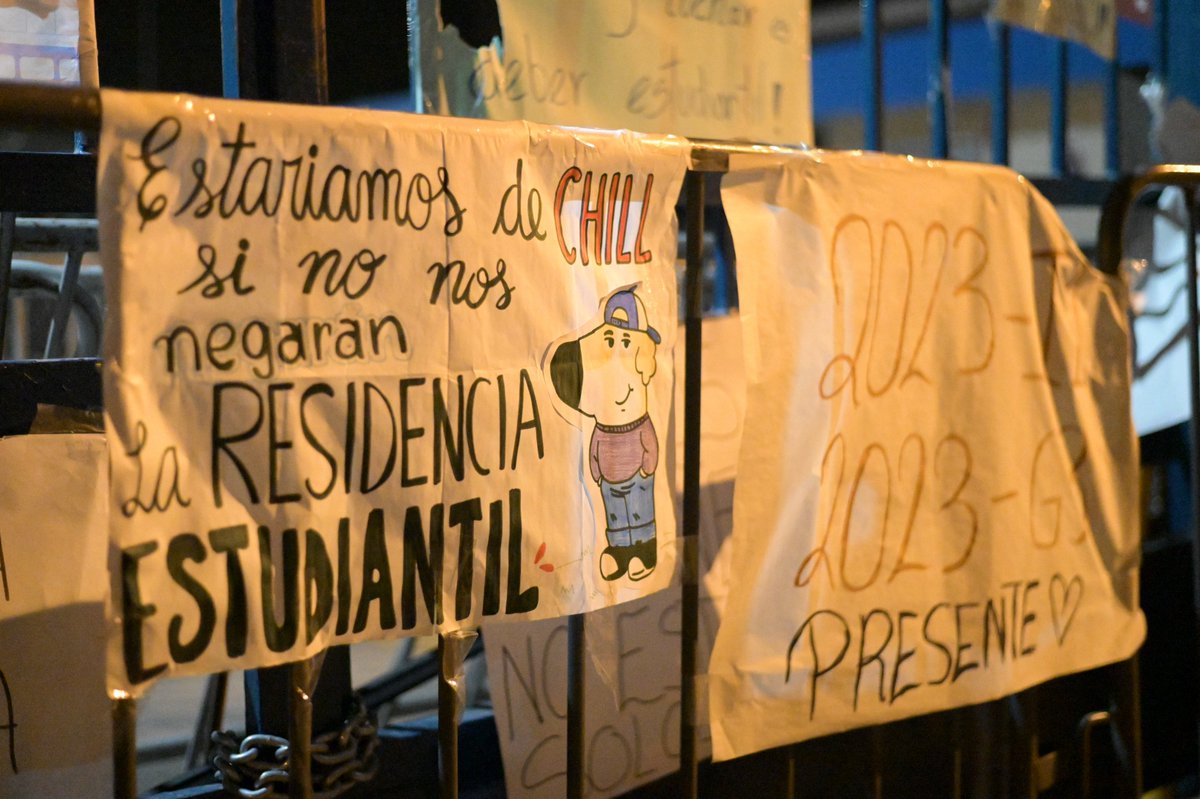 y luchar e
deber estudiantil!
Estariamos de CHILL
si no nos
negaran
La RESIDENCIA
ESTUDIANTIL
2023-
2023-G
PRESENTE
NO ES